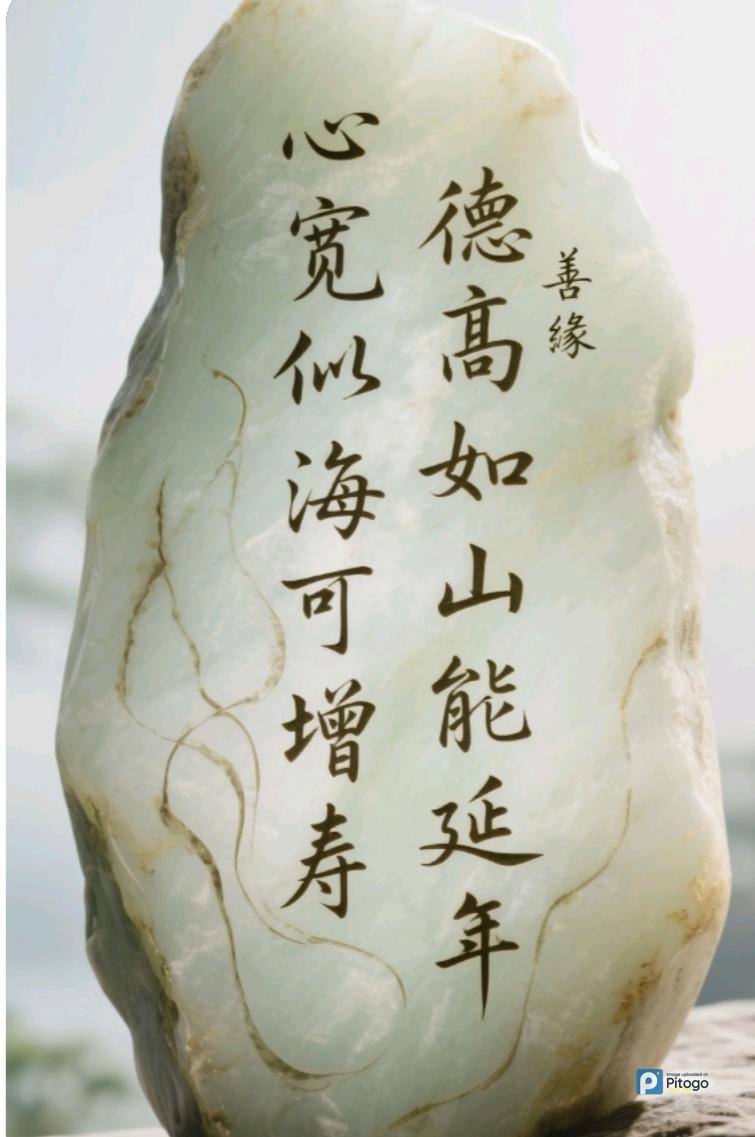 善緣
德高如山能延年
心宽似海可增寿
image uploaded at
Pitogo